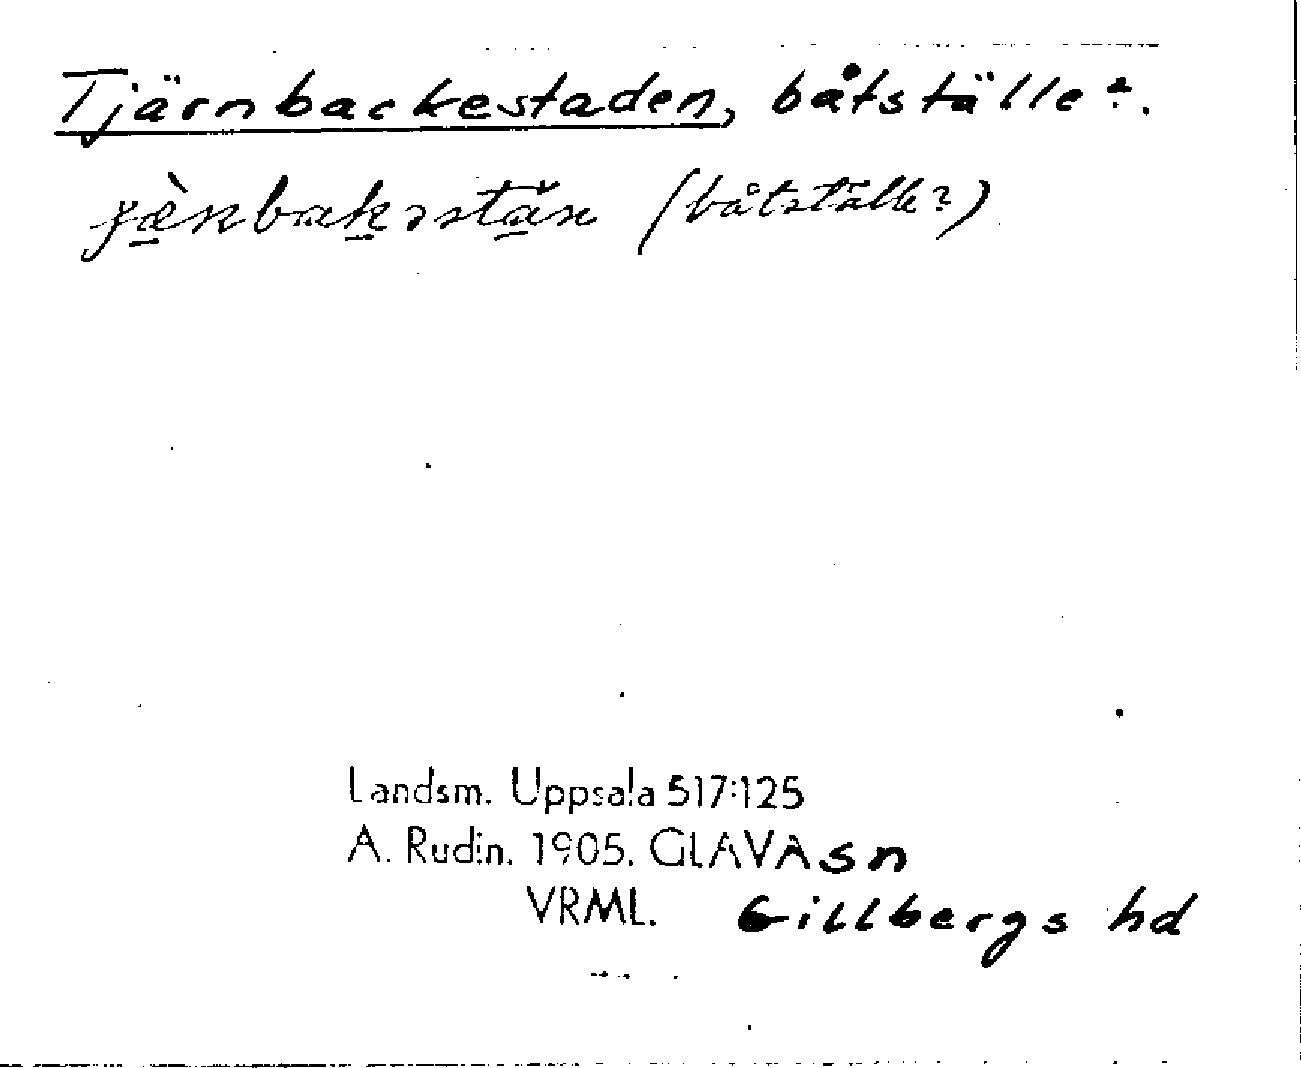 Tjärnbackestaden, båtställe?.
(båtställe?)
Landsm. Uppsala 517:125
A. Rudin. 1905. GLAVA sn
VRML. Gillbergs hd